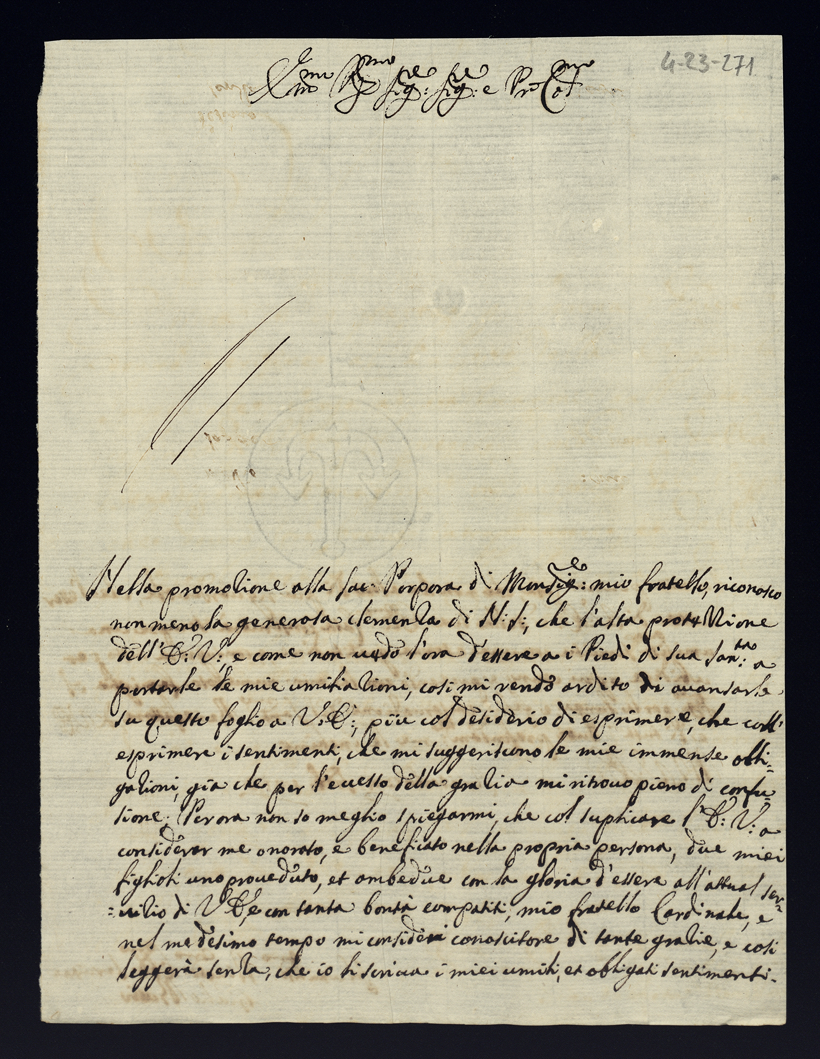 4-23-271
Em̃o Rmo Sig:re Sig:re e Prõn Col:mo
Nella promozione alla Sac: Porpora di Monsig:re mio fratello, riconosco
non meno la generosa clemenza di N: S:, che l'alta protezzione
dell'E: V: e come non vedo l'ora d'essere a i Piedi di sua San:tà a
portarle le mie umiliazioni, cosi mi rendo ardito di avansarle
su questo foglio a V: E:, più col desiderio di esprimere, che coll'
esprimere i sentimenti, che mi suggeriscono le mie immense obli-
gazioni, gia che per l'eccesso della grazia mi ritrovo pieno di confu-
sione; Per ora non so meglio spiegarmi, che col suplicare l'E: V: a
considerar me onorato, e beneficato nella propria persona, due miei
figlioli uno proveduto, et ambedue con la gloria d'essere all'attual ser-
:vizio di V: E, e con tanta bontà compatiti, mio fratello Cardinale, e
nel medesimo tempo mi consideri conoscitore di tante grazie, e cosi
leggerà senza, che io li scriva i miei umili, et obligati sentimenti.